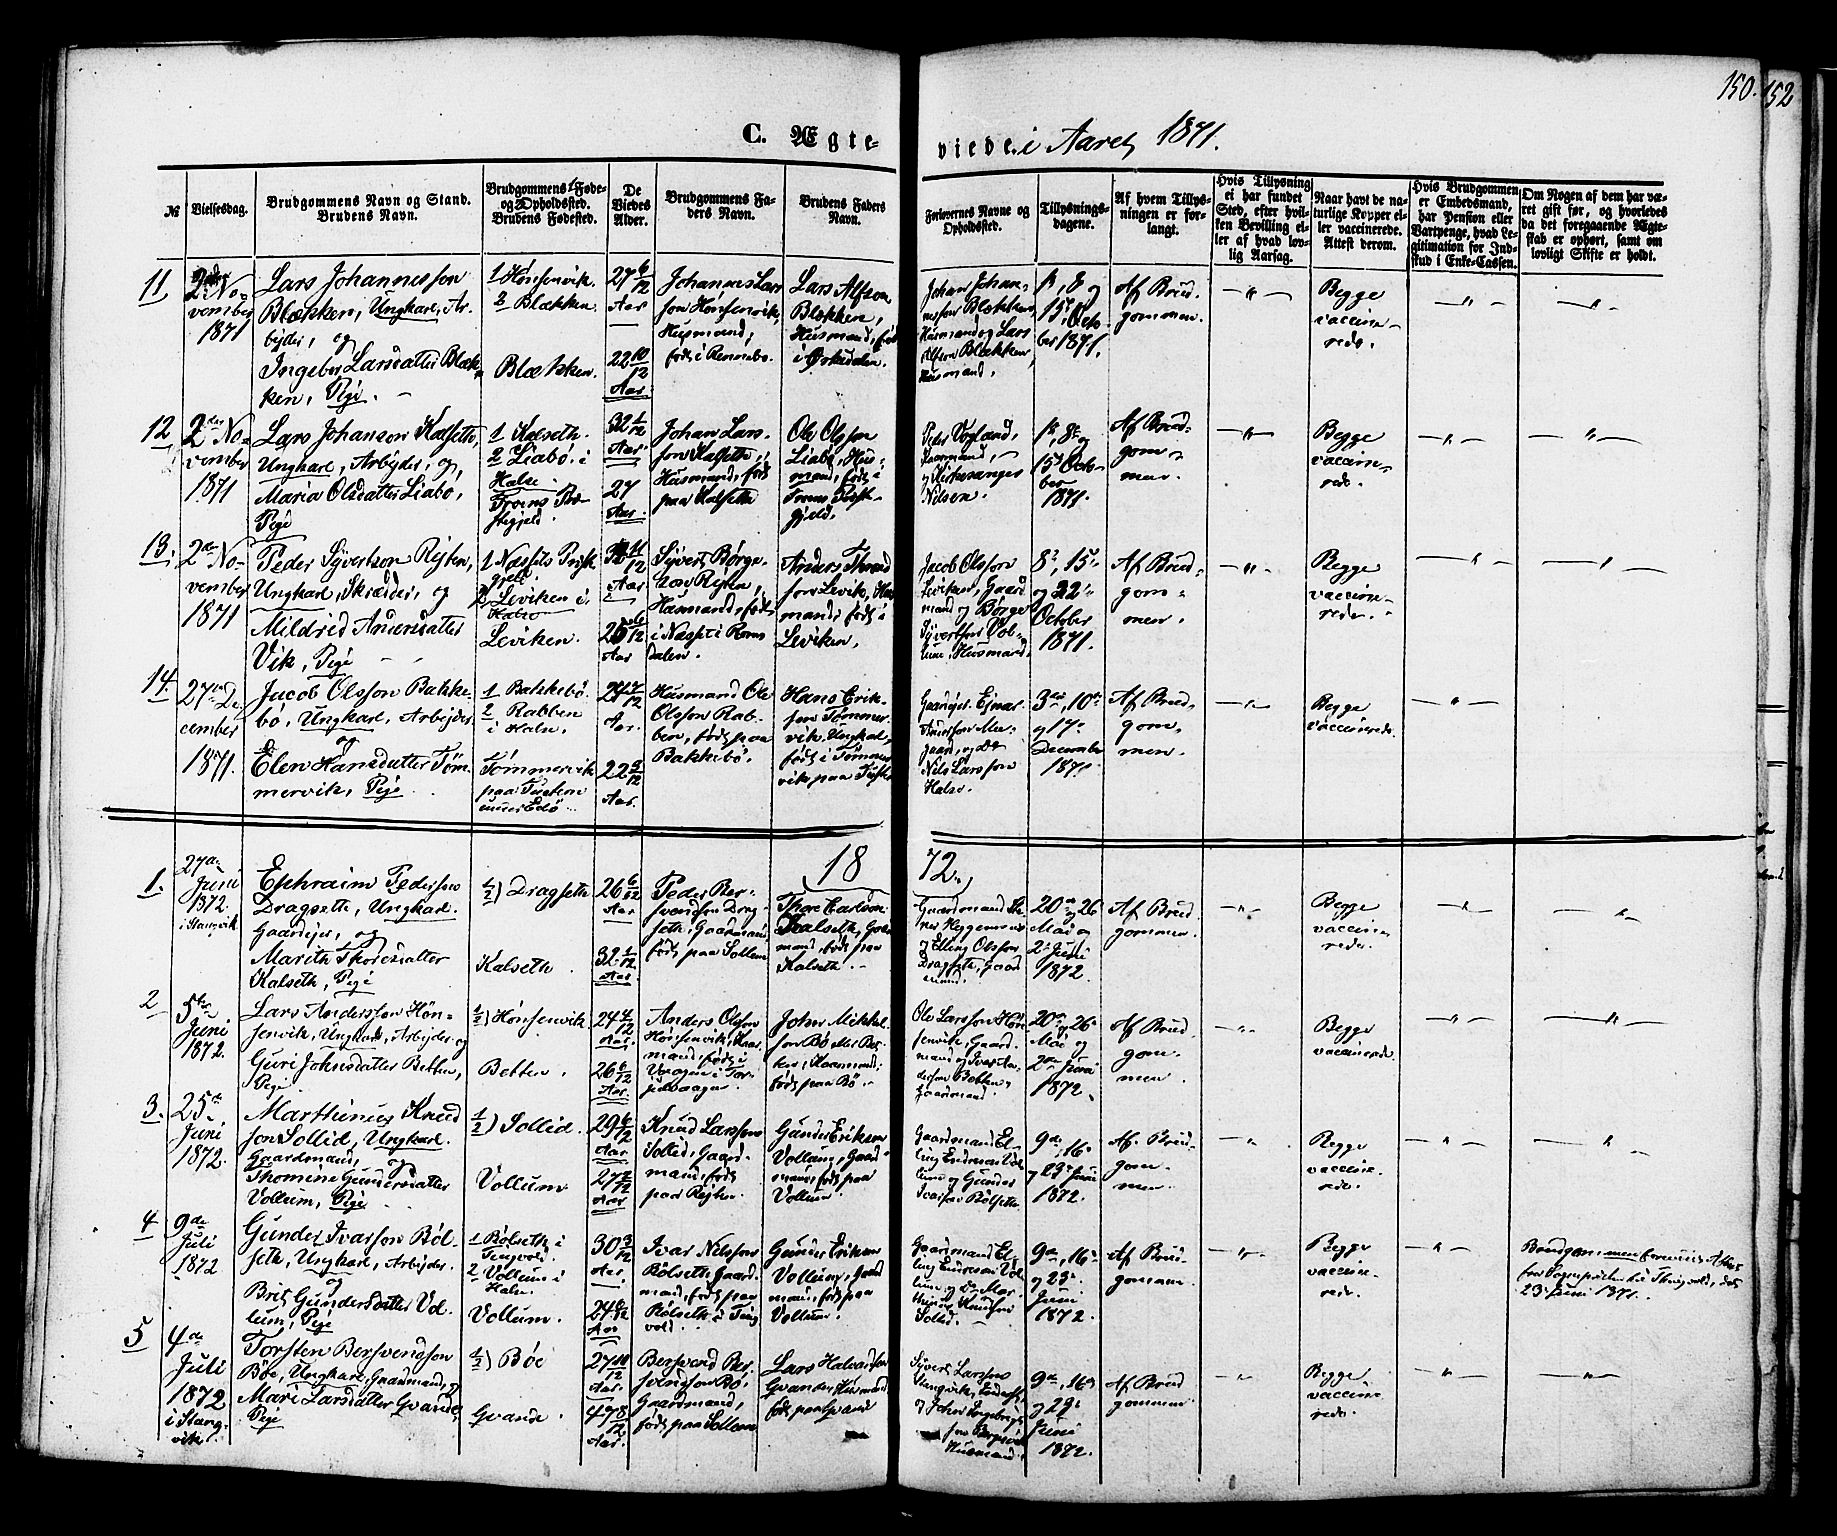 150.
152
C. Ægte-
viede. i Aaret 1871.
№
Vielsesdag.
Brudgommens Navn og Stand.
Brudens Navn.
Brudgommens Føde-
og Opholdssted.
Brudens Fødested.
De
Viedes
Alder.
Brudgommens Fa-
ders Navn.
Brudens Faders
Navn.
Forlovernes Navne og
Opholdssted.
Tillysnings-
dagene.
Af hvem Tillys-
ningen er for-
langt.
Hvis Tillysning
ei har fundet
Sted, efter hvil-
ken Bevilling el-
ler af hvad lov-
lig Aarsag.
Naar havt de na-
turlige Kopper el-
ler vaccinerede.
Attest derom.
Hvis Brudgommen
er Embedsmand,
har Pension eller
Vartpenge, hvad Le-
gitimation for Ind-
skud i Enke-Cassen.
Om Nogen af dem har væ-
ret gift før, og hvorledes
da det foregaaende Ægte-
skab er ophørt, samt om
lovligt Skifte er holdt.
11
2den No-
vember
1871
Lars Johannesson
Blækken, Ungkarl, Ar-
bejder, og
Ingeber Larsdatter Blæk-
ken, Pige.
1 Hønsenvik.
2 Blækken.
Blækken.
27 6/12
Aar
22 10/12
Aar.
Johannes Lars
son Hønsenvik,
Husmand,
født i Rennebo.
Lars Alfson
Blækken,
Husmand, født
i Ørkedalen.
Johan Johan-
nesson Blækken
Husmand og Lars
Alfson Blækken
Husmand.
1st, 8 og
15de Octo-
ber 1871.
Af Brud-
gommen.
Begge
vaccine-
rede.
12
2den No-
vember
1871
Lars Johanson Kalseth,
Ungkarl, Arbejder, og
Maria Olsdatter Liabø,
Pige
1 Kalseth.
2 Liabø. i
Halse.
Froens Præ-
stegjeld.
32 1/12
Aar.
27
Aar.
Johan Lars-
son Kalseth,
Husmand, født
paa Kalseth
Ole Olsson
Liabø, Hus-
mand, født i
Froens Præst-
gjeld.
Peder Vogland,
Gaarmand,
og Kirkesanger
Nilsen.
1st, 8de og
15de Octo-
ber
1871.
Af Brud-
gom-
men.
Begge
vaccine-
rede.
13.
2den No-
vember
1871
Peder Syvertson Rejten,
Ungkarl, Skrædder, og
Mildrid Andersdatter
Vik, Pige
1 Næssets Præst
gjeld
2 Leviken i
Halse
Leviken.
11/12
Aar
25 /12
Aar
Syvert Børge-
son Rejten,
Husmand, født
i Næsset i Roms
dalen.
Anders
son Levik, Hus
mand, født i
Leviken,
Jacob Olsson
Leviken, Gaard
mand og Børge
Syvertson
Husmand.
8de, 15de
og 22de
October
1871.
Af Brud-
gom-
men.
Begge
vaccine-
rede.
14.
27de De-
cember
1871.
Jacob Olsson Bakke-
bø, Ungkarl, Arbejder
og
Elen Hansdatter Tøm-
mervik, Pige
1 Bakkebø.
2 Rabben
i Halse.
Tømmervik
paa Tusteren
under Edø
24 7/12
Aar.
22 9/12
Aar.
Husmand Ole
Olsson Rab-
ben, født paa
Bakkebø.
Hans Erik-
son Tømmer-
vik. Ungkarl,
født i Tømmer
vik paa Tuster
Gaardejer Ejnar
og
Nils Larsson
Halse.
3die, 10de
og 17de
December
1871.
Af Brud-
gom-
men.
Begge
vaccinerede.
18
72.
1.
27de
Juni
1872.
i Stangvik.
Ephraim Pederson
Dragseth, Ungkarl.
Gaardejer, og
Marith Thoresdatter
Kalseth, Pige
1/2) Dragseth
Kalseth.
26 6/12
Aar
32 1/12
Aar
Peder Ber-
svendson Drag
seth, Gaarmand
født paa Sollem
Thore
Kalseth, Gaar
mand, født paa
Kalseth.
Gaardmand
og Elling Olsson
Dragseth, Gaard
mand.
20de og 26
Mai og
2de Juni
1872
Af Brud
gommen.
Begge
vaccine
rede.
2
5te
Juni
1872.
Lars Andersson Høn-
senvik, Ungkarl, Arbejder og
Guri Johnsdatter Betten,
Pige
1/2) Hønsenvik
Betten.
24 4/12
Aar.
26 6/12
Aar.
Anders Olsson
Hønsenvik, Gaar
mand, født i
John Mikkel
son Bø eller Bet
ten, Gaarmand,
født paa Bø.
Ole Larsson Høn
senvik, Gaard
mand og Ivar An
dersson Betten,
Gaarmand.
20de og 26
Mai og
2den Juni
1872.
Af Brud
gom-
men.
Begge
vaccinerede.
3.
25de
Juni
1872.
Marthinus Knud
son Sollid, Ungkarl.
Gaardmand, og
Thomine Gundersdatter
Vollum, Pige
1/2) Sollid.
Vollum.
29 6/12
Aar
27 9/12
Aar.
Knud Larsson
Sollid, Gaard-
mand, født
paa Rejten.
Gunder Erikson
Vollum, Gaard-
mand, født paa
Vollum.
Gaardmand El-
ling Endreson Vol
lum og Gunder
Ivarson Bølseth
9de, 16de
og 23de Juni
1872.
Af Brud-
gom-
men.
Begge
vaccine-
rede.
4
9de
Juli
1872
Gunder Ivarson Bøl-
seth, Ungkarl, Arbejder.
og
Brit Gundersdatter Vol-
lum, Pige
1 Bølseth i
Tingvold.
2 Vollum i
Halse.
Vollum.
30 3/12
Aar.
24 6/12
Aar
Ivar Nilsson
Bølseth, Gaard-
mand, født paa
Bølseth i Ting
vold.
Gunder Erikson
Vollum, Gaard
mand, født paa
Vollum.
Gaardmand El-
ling Endreson Vol
lum og Mar-
thinus Knudson
Sollid.
9de, 16de
og 23de
Juni
1872.
Af Brud
gommen.
Begge
vaccine-
rede.
Brudgommen
23 Juni 1871.
5
4de
Juli
1872
i Stang-
vik
Torsten Bersvendson
Bøe, Ungkarl, Gaarmand, og
Mari Larsdatter Gvande,
Pige
1/2) Bøe
Gvande.
27 10/12
Aar.
49 8/12
Aar.
Bersvend Ber-
svendson Bø,
Gaardmand,
født paa Sollem
Lars Halvardson
Gvande, Husmand
født paa Gvand
Syvert Larsson
Stangvik,
og John Ingebrigt
son
Husmand.
9de, 16de
og 23de
Juni
1872.
Af Brud
gommen.
Begge
vaccine
rede.